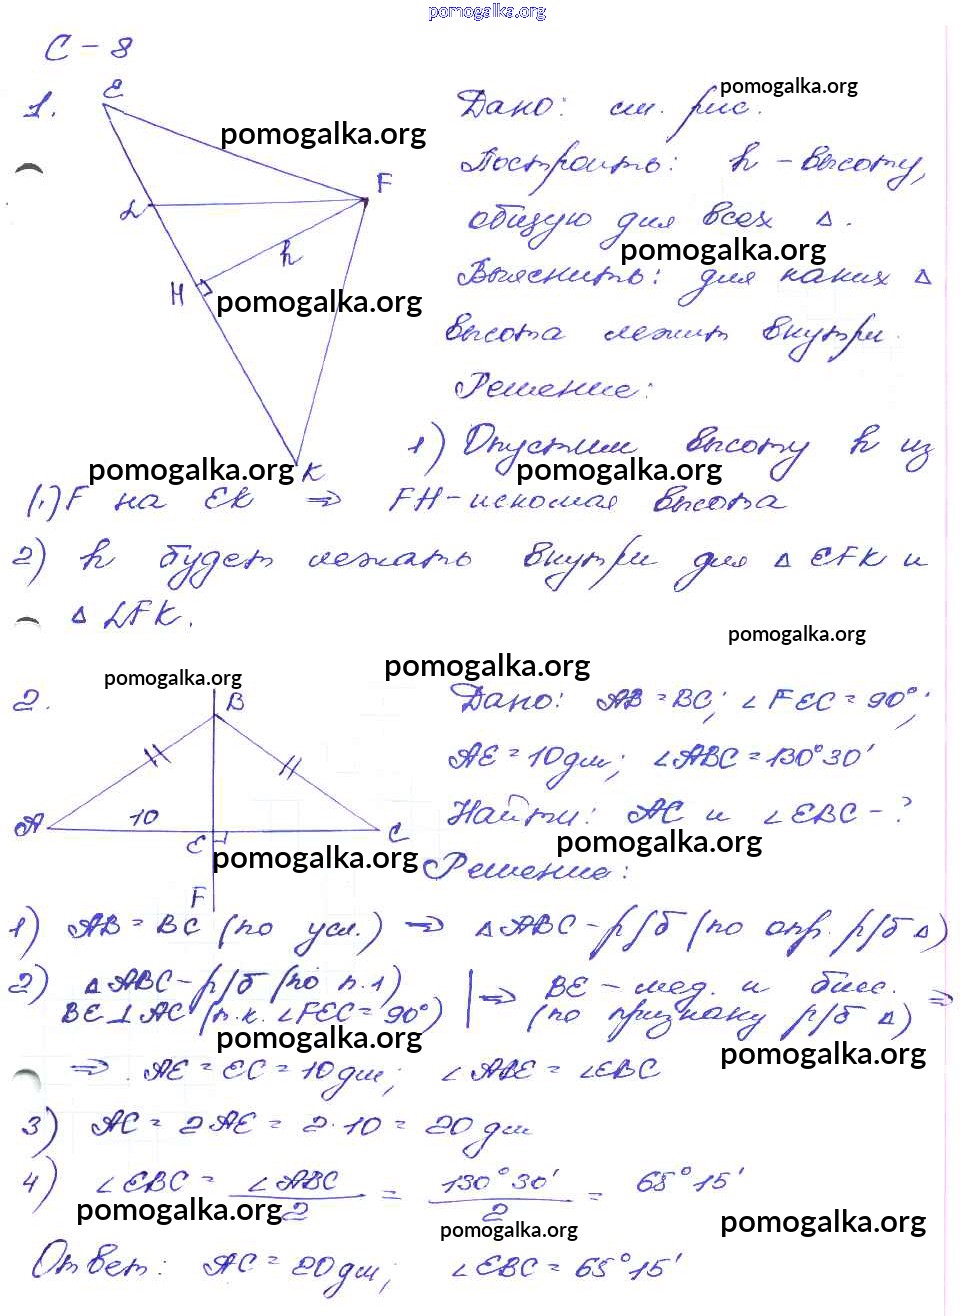 pomogalka.org
С - 8
1.
E
F
L
h
H
K
Дано: см. рис.
Построить: h - высоту,
общую для всех Δ.
Выяснить: для каких Δ
высота лежит внутри.
Решение:
1) Опустим высоту h из
(·)F на EK ⇒ FH - искомая высота
2) h будет лежать внутри для Δ EFK и
Δ LFK.
pomogalka.org
pomogalka.org
pomogalka.org
pomogalka.org
pomogalka.org
pomogalka.org
pomogalka.org
pomogalka.org
pomogalka.org
2.
B
A
10
E
C
F
Дано: AB = BC; ∠FEC = 90°;
AE = 10 дм; ∠ABC = 130°30'
Найти: AC и ∠EBC - ?
Решение:
1) AB = BC (по усл.) ⇒ Δ ABC - р/б (по опр. р/б Δ)
2) Δ ABC - р/б (по п.1)
BE ⊥ AC (т.к. ∠FEC = 90°)
⇒ BE - мед. и бисс. ⇒
(по признаку р/б Δ)
⇒ AE = EC = 10 дм; ∠ABE = ∠EBC
3) AC = 2AE = 2·10 = 20 дм
4) ∠EBC = ∠ABC / 2 = 130°30' / 2 = 65°15'
Ответ: AC = 20 дм; ∠EBC = 65°15'
pomogalka.org
pomogalka.org
pomogalka.org
pomogalka.org
pomogalka.org
pomogalka.org
pomogalka.org